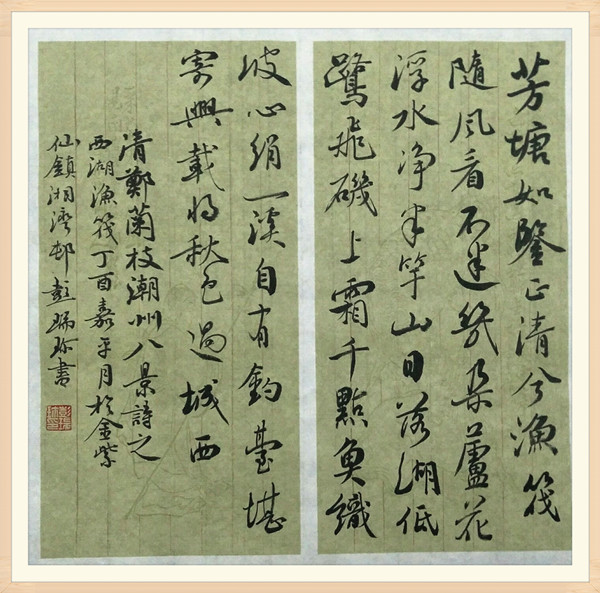 芳塘如鑒正清兮漁筏
隨風看不迷幾朵蘆花
浮水净半竿山日落湖低
鷺飛磯上霜千點魚織
波心絹一溪自有釣臺堪
寄興載將秋色過城西
清鄭蘭枝潮州八景詩之
西湖漁筏丁酉嘉平月於金紫
仙鎮湘灣邨彭瑞珍書